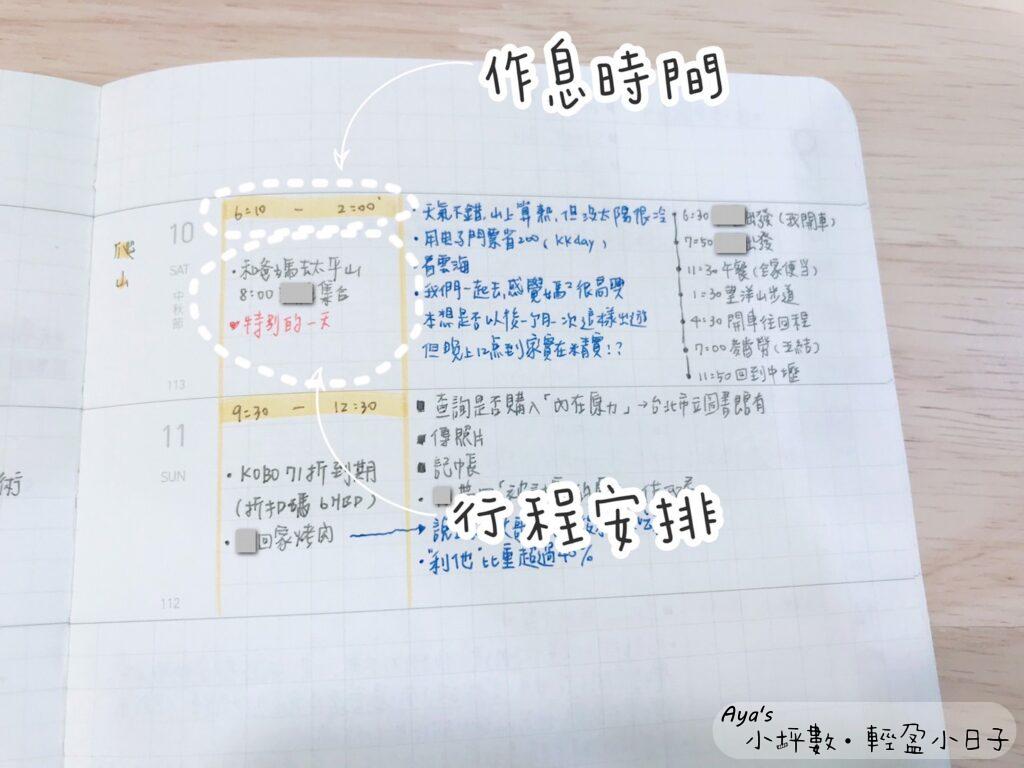 作息時間
10
SAT
中秋節
113
爬山
6:10 — 2:00
・和爸媽去太平山
8:00 集合
♥特別的一天
・天氣不錯,山上算熱,但沒太陽很冷
・用电子門票省200(kkday)
・看雲海
・我們一起去,感覺媽媽很高興
本想是否以後一個月一次這樣出遊
但晚上12点到家實在
6:30 出發(我開車)
7:50 出發
11:30 午餐(全家便当)
1:30 望洋山步道
4:30 開車往回程
7:00 麥當勞(五結)
11:50 回到中壢
11
SUN
112
9:30 — 12:30
・KOBO 71折到期
(折扣碼
・回家烤肉
■ 查詢是否購入「内在原力」→台北市立圖書館有
■ 傳照片
■ 記帳
・"利他"比重超過40%
行程安排
術
Aya's
小坪數・輕盈小日子